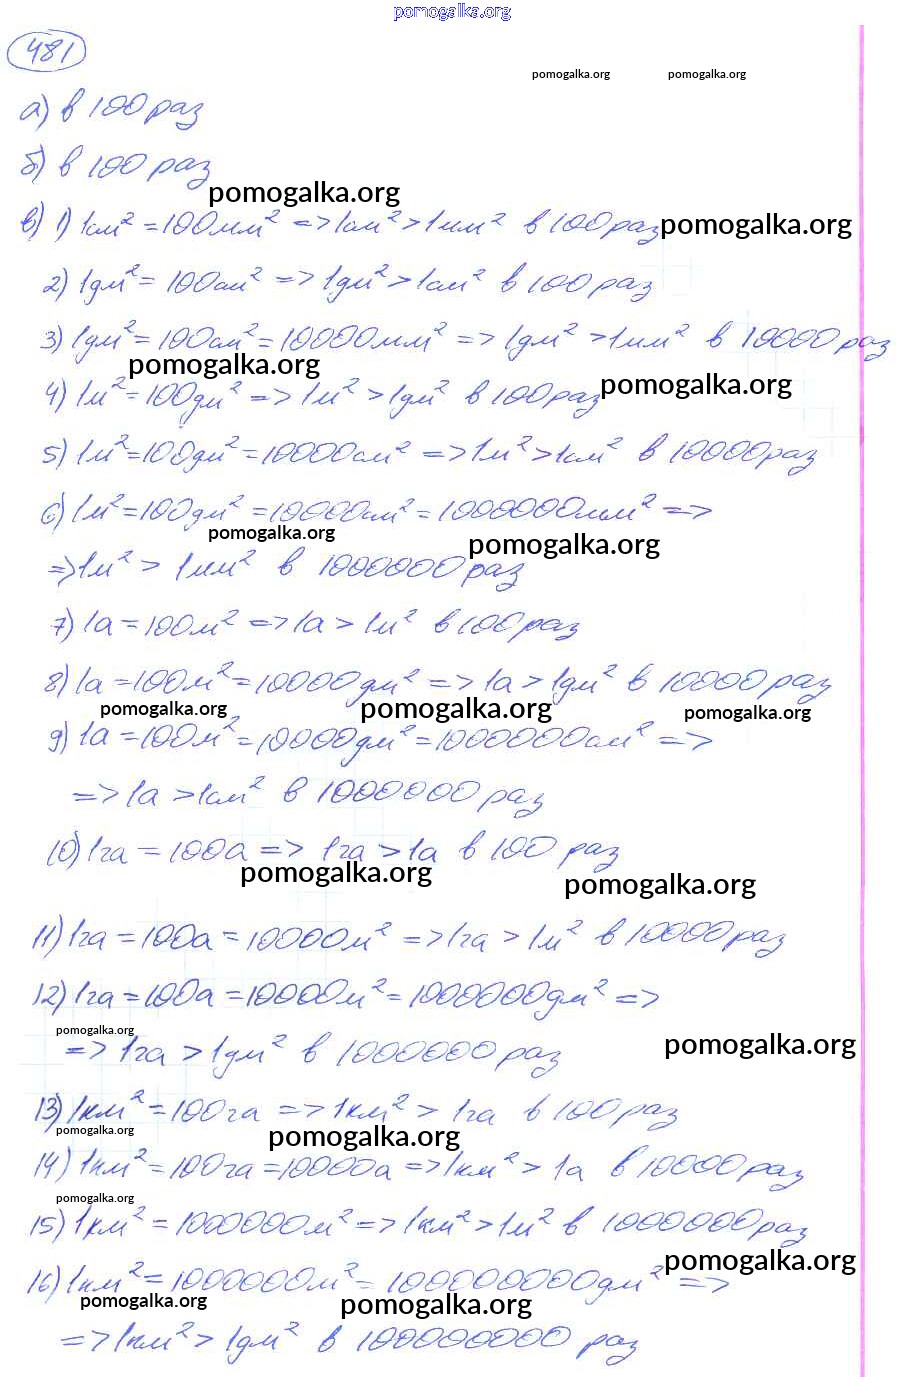 pomogalka.org
481
pomogalka.org pomogalka.org
а) в 100 раз
б) в 100 раз
pomogalka.org
в) 1) 1см² = 100мм² => 1см² > 1мм² в 100 раз pomogalka.org
2) 1дм² = 100см² => 1дм² > 1см² в 100 раз
3) 1дм² = 100см² = 10000мм² => 1дм² > 1мм² в 10000 раз
pomogalka.org pomogalka.org
4) 1м² = 100дм² => 1м² > 1дм² в 100 раз
5) 1м² = 100дм² = 10000см² => 1м² > 1см² в 10000 раз
6) 1м² = 100дм² = 10000см² = 1000000мм² =>
pomogalka.org pomogalka.org
=> 1м² > 1мм² в 1000000 раз
7) 1а = 100м² => 1а > 1м² в 100 раз
8) 1а = 100м² = 10000дм² => 1а > 1дм² в 10000 раз
pomogalka.org pomogalka.org pomogalka.org
9) 1а = 100м² = 10000дм² = 1000000см² =>
=> 1а > 1см² в 1000000 раз
10) 1га = 100а => 1га > 1а в 100 раз
pomogalka.org pomogalka.org
11) 1га = 100а = 10000м² => 1га > 1м² в 10000 раз
12) 1га = 100а = 10000м² = 1000000дм² =>
pomogalka.org pomogalka.org
=> 1га > 1дм² в 1000000 раз
13) 1км² = 100га => 1км² > 1га в 100 раз
pomogalka.org pomogalka.org
14) 1км² = 100га = 10000а => 1км² > 1а в 10000 раз
pomogalka.org
15) 1км² = 1000000м² => 1км² > 1м² в 1000000 раз
pomogalka.org
16) 1км² = 1000000м² = 100000000дм² =>
pomogalka.org pomogalka.org
=> 1км² > 1дм² в 100000000 раз